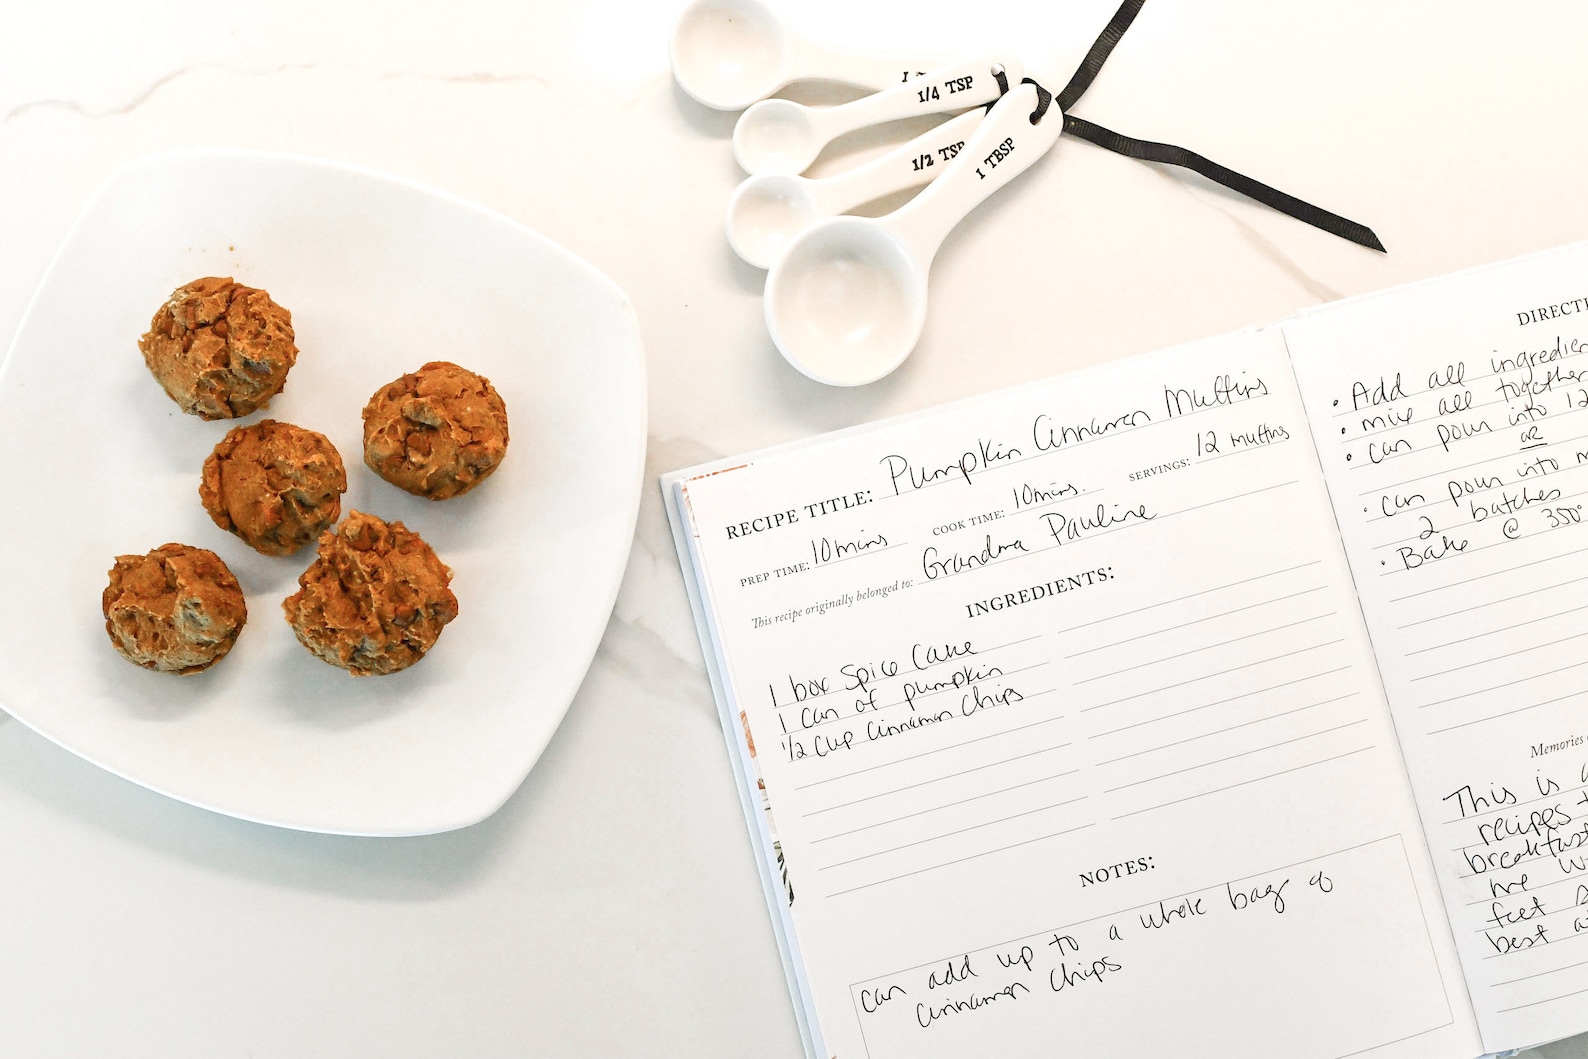 1/4 TSP
1/2 TSP
1 TBSP
RECIPE TITLE: Pumpkin Cinnamon Muffins
PREP TIME: 10mins COOK TIME: 10mins. SERVINGS: 12 muffins
This recipe originally belonged to: Grandma Pauline
INGREDIENTS:
1 box Spice Cake
1 can of pumpkin
1/2 cup Cinnamon Chips
NOTES:
can add up to a whole bag of
Cinnamon Chips
• Add all
• mix all together
• can pour into 12
OR
• can pour into
2 batches
• Bake @ 350°
Memories
This is
recipes
breakfast
me
feet
best